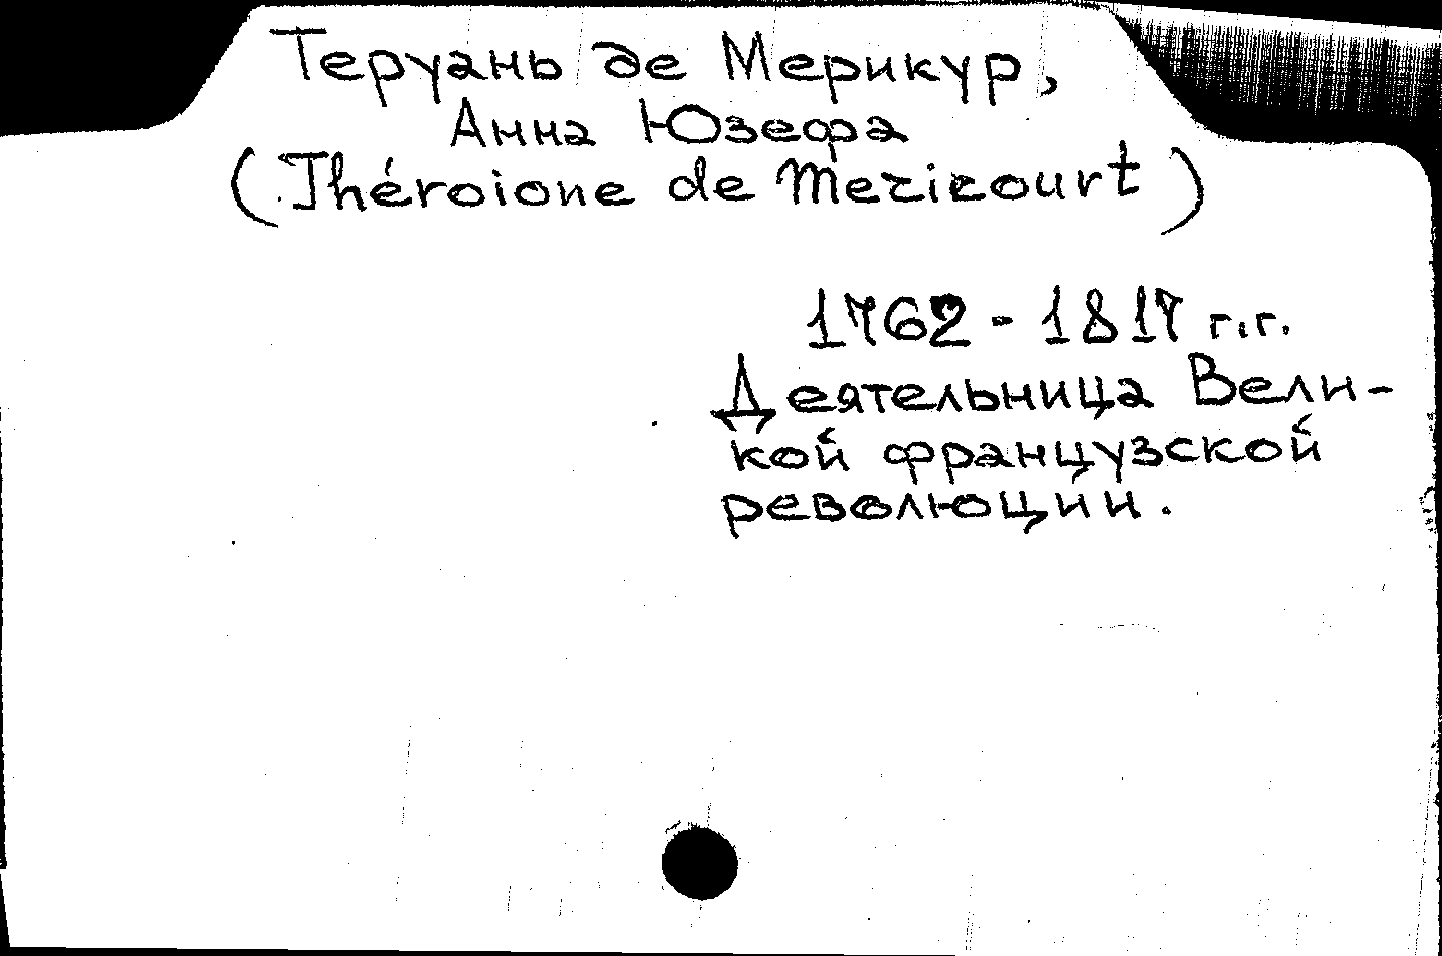 Теруань де Мерикур,
Анна Юзефа
(Théroione de Mericourt)
1762-1817 г.г.
Деятельница Вели-
кой французской
революции.